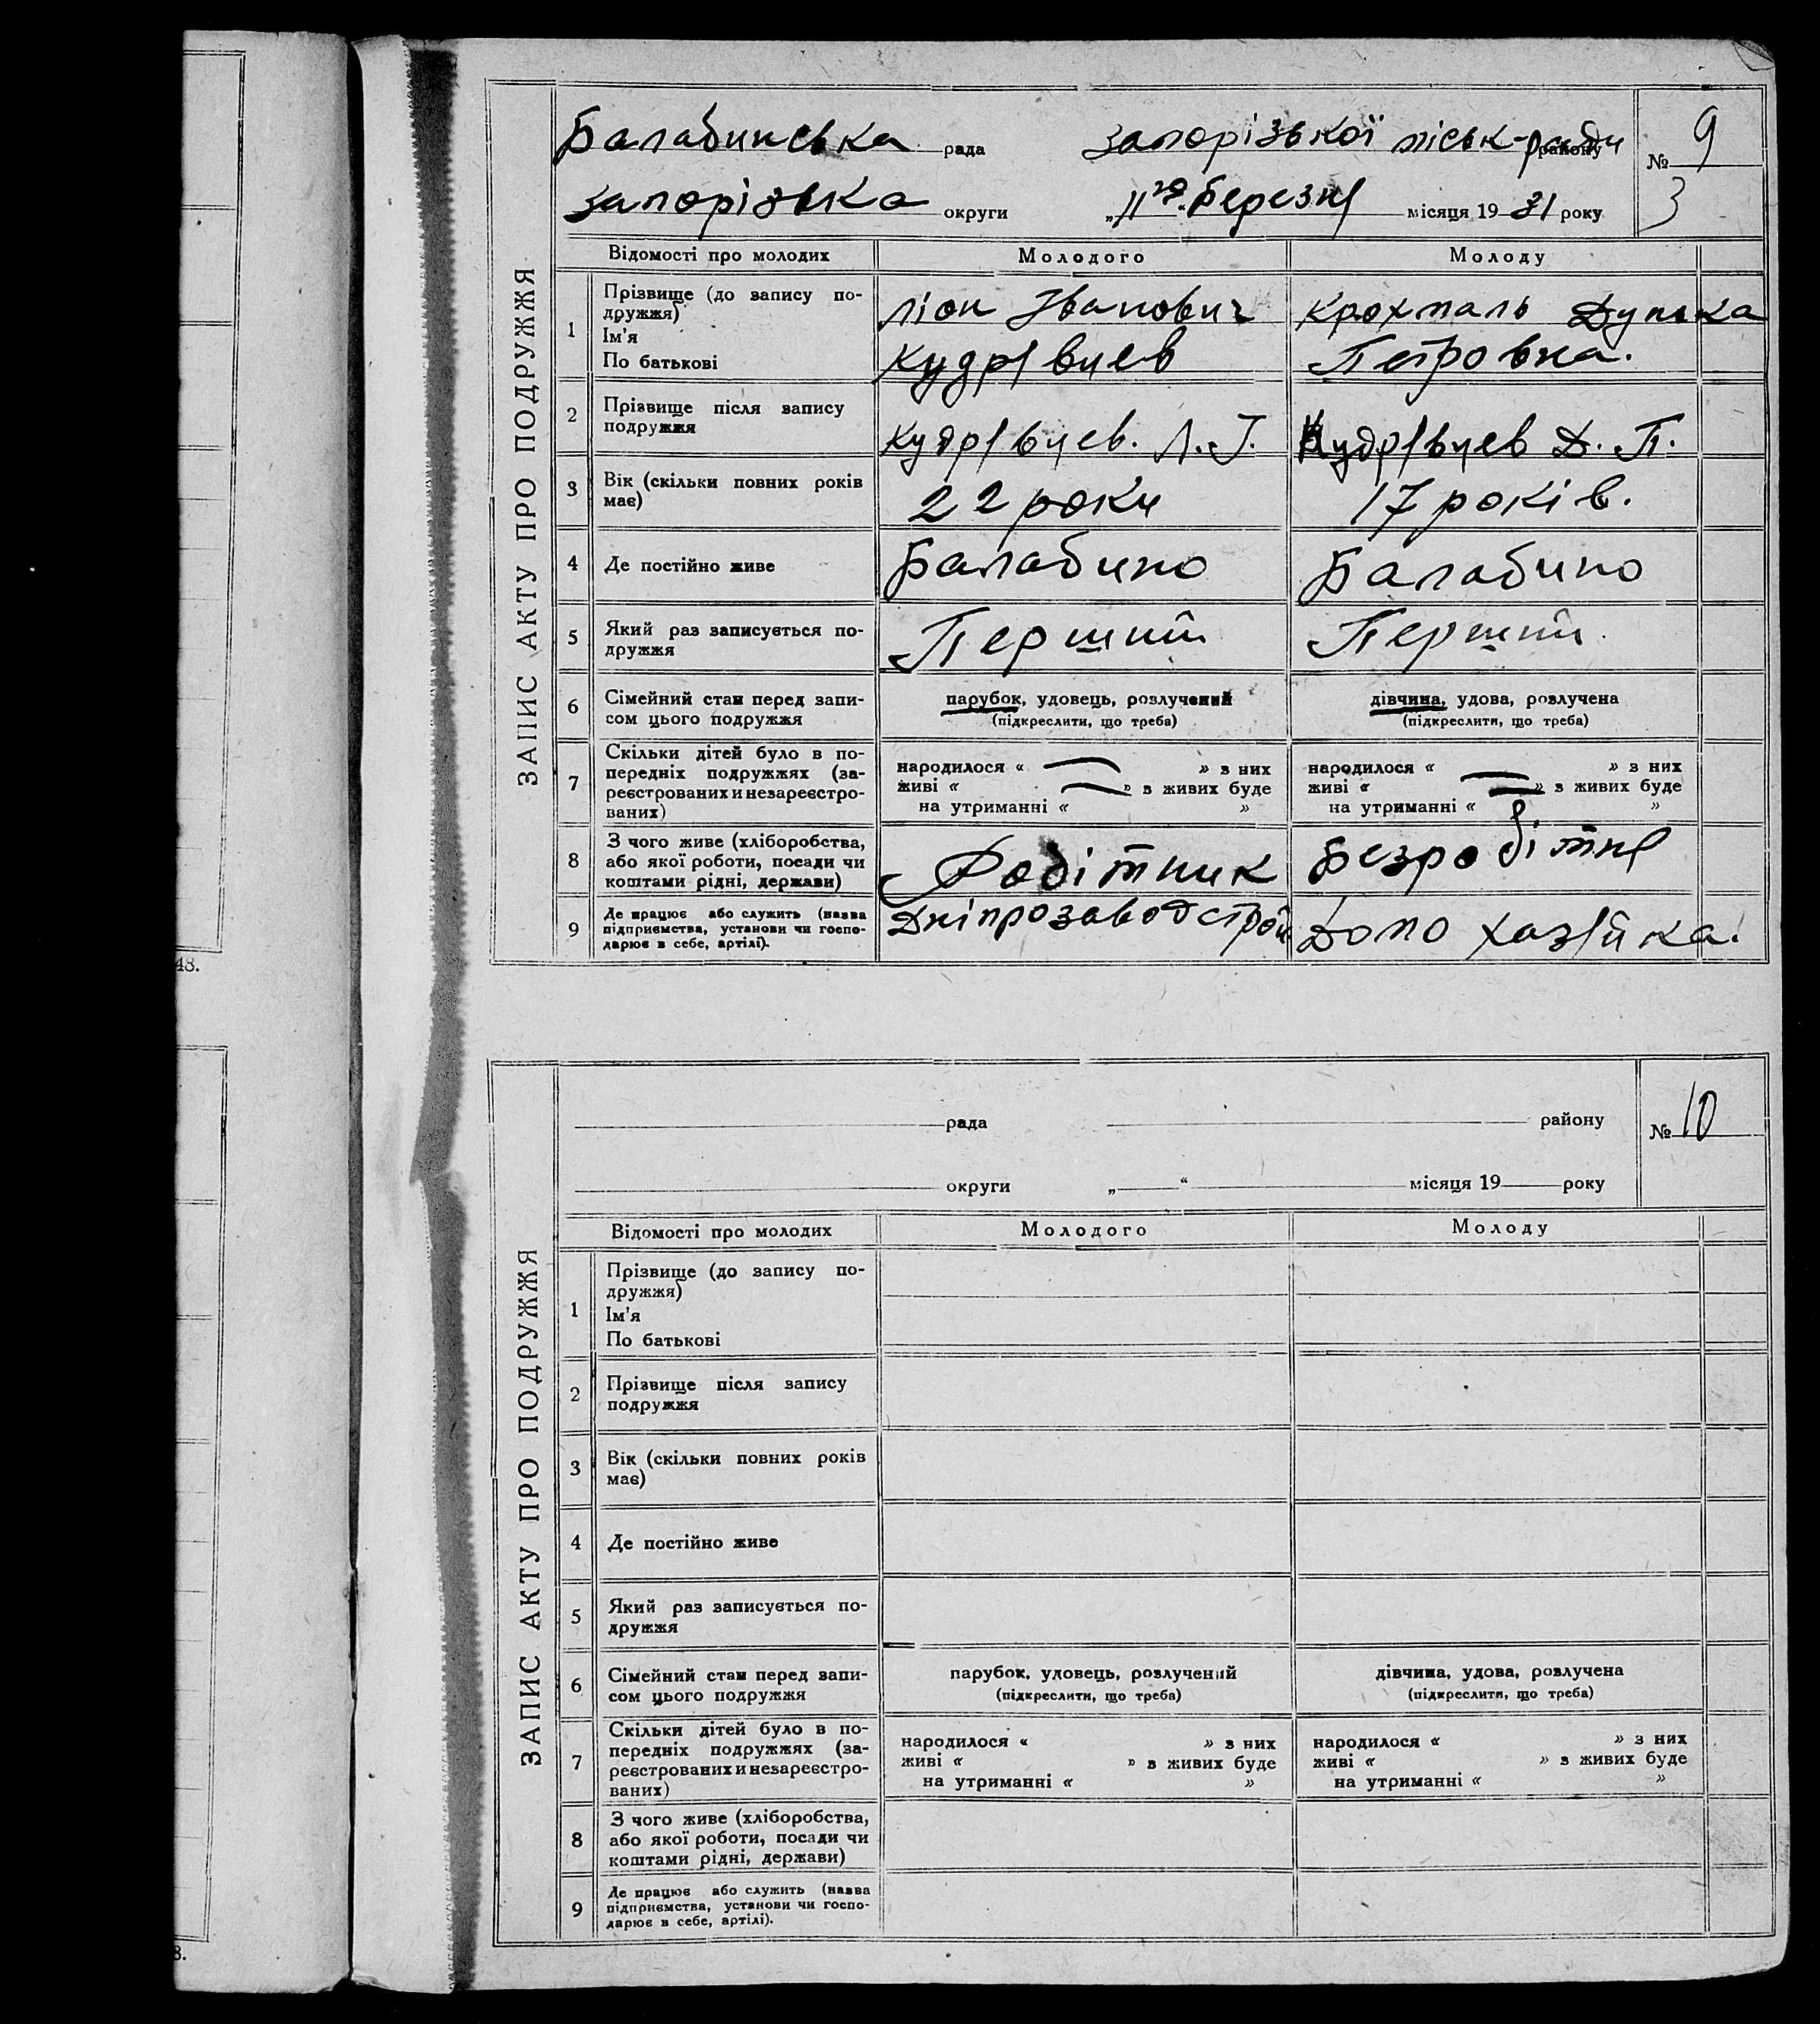 ЗАПИС АКТУ ПРО ПОДРУЖЖЯ
Балабинська рада запорізької міськ-ради району № 9
запорізька округи „11го“ березня місяця 1931 року 3
Відомості про молодих Молодого Молоду
1 Прізвище (до запису по-
дружжя)
Ім'я
По батькові
ліон Іванович
Кудрявцев
Крохмаль Дунька
Петровна.
2 Прізвище після запису
подружжя
Кудрявцев. Л. І. Кудрявцев Д. П.
3 Вік (скільки повних років
має)
22 роки 17 років.
4 Де постійно живе Балабино Балабино
5 Який раз записується по-
дружжя
Перший Перший
6 Сімейний стан перед запи-
сом цього подружжя
парубок, удовець, розлучений
(підкреслити, що треба)
дівчина, удова, розлучена
(підкреслити, що треба)
7 Скільки дітей було в по-
передніх подружжях (за-
реєстрованих и незареєстро-
ваних)
народилося « » з них
живі « » з живих буде
на утриманні « »
народилося « » з них
живі « » з живих буде
на утриманні « »
8 З чого живе (хліборобства,
або якої роботи, посади чи
коштами рідні, держави)
Робітник Безробітня
9 Де працює або служить (назва
підприємства, установи чи госпо-
дарює в себе, артілі).
Дніпрозаводстрой Домо хазяйка.
48.
ЗАПИС АКТУ ПРО ПОДРУЖЖЯ
рада району № 10
округи „ “ місяця 19 року
Відомості про молодих Молодого Молоду
1 Прізвище (до запису по-
дружжя)
Ім'я
По батькові
2 Прізвище після запису
подружжя
3 Вік (скільки повних років
має)
4 Де постійно живе
5 Який раз записується по-
дружжя
6 Сімейний стан перед запи-
сом цього подружжя
парубок, удовець, розлучений
(підкреслити, що треба)
дівчина, удова, розлучена
(підкреслити, що треба)
7 Скільки дітей було в по-
передніх подружжях (за-
реєстрованих и незареєстро-
ваних)
народилося « » з них
живі « » з живих буде
на утриманні « »
народилося « » з них
живі « » з живих буде
на утриманні « »
8 З чого живе (хліборобства,
або якої роботи, посади чи
коштами рідні, держави)
9 Де працює або служить (назва
підприємства, установи чи госпо-
дарює в себе, артілі).
8.